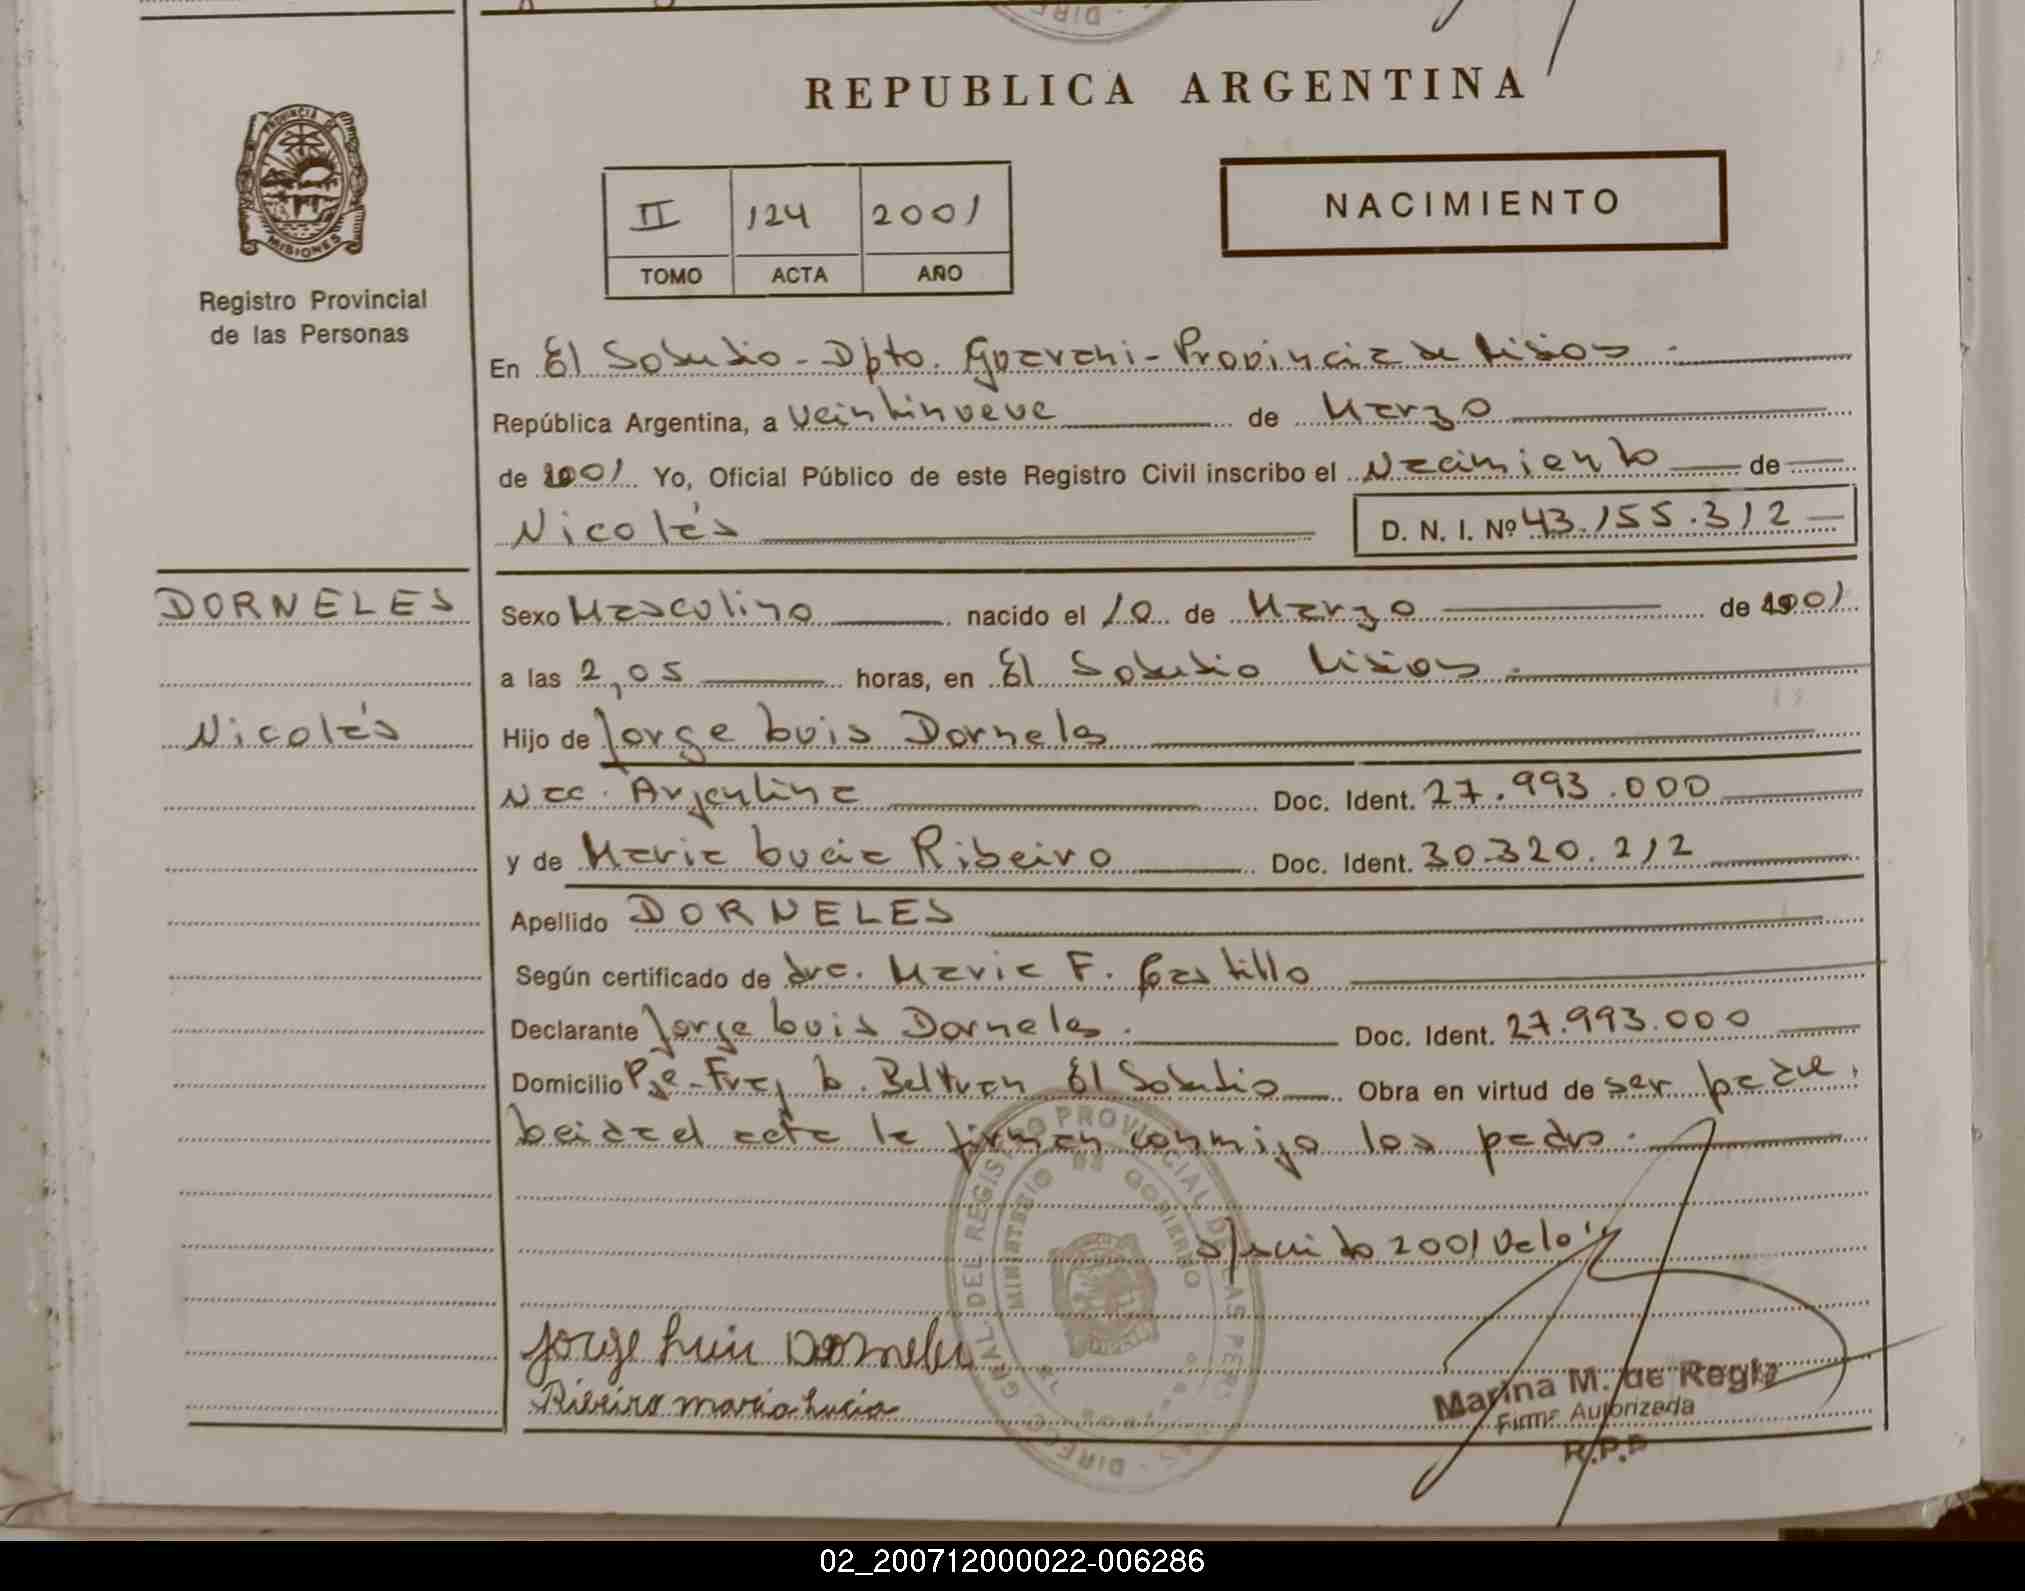 REPUBLICA ARGENTINA
PROVINCIA DE MISIONES
Registro Provincial
de las Personas
II 124 2001
TOMO ACTA AÑO
NACIMIENTO
En El Soberbio - Dpto. Guarani - Provincia de Misiones.
República Argentina, a veintinueve de Marzo
de 2001 Yo, Oficial Público de este Registro Civil inscribo el Nacimiento de
Nicolás D. N. I. Nº 43.155.312
DORNELES
Nicolás
Sexo Masculino nacido el 10 de Marzo de 2001
a las 2,05 horas, en El Soberbio Misiones.
Hijo de Jorge Luis Dorneles
Nac. Argentina Doc. Ident. 27.993.000
y de Maria Lucia Ribeiro Doc. Ident. 30.320.212
Apellido DORNELES
Según certificado de dra. Maria F. Castillo
Declarante Jorge Luis Dorneles. Doc. Ident. 27.993.000
Domicilio Pje. Fray L. Beltran El Soberbio Obra en virtud de ser padre.
Leida el acta la firman conmigo los padres.
2001 Vale
Jorge Luis Dorneles
Ribeiro maria Lucia
DIRECC. GRAL. DEL REGISTRO PROVINCIAL DE LAS PERSONAS
MINISTERIO DE GOBIERNO
Marina M. de Regla
Firma Autorizada
R.P.P
02_200712000022-006286